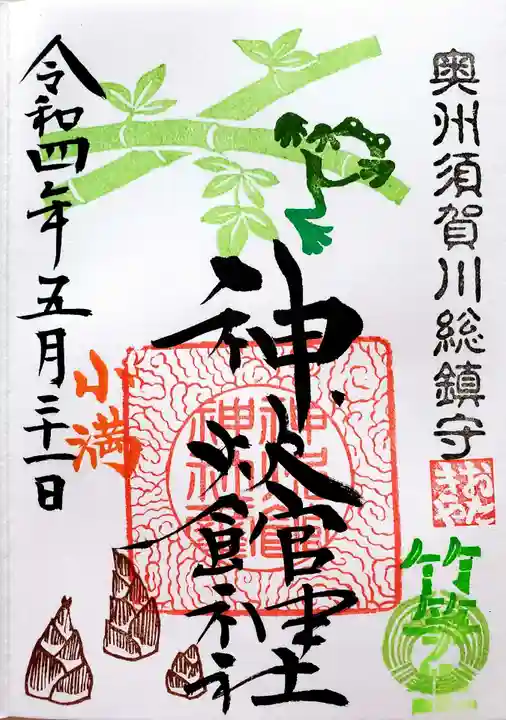 奥州須賀川総鎮守
竹笋生
神炊館神社
小満
令和四年五月二十一日